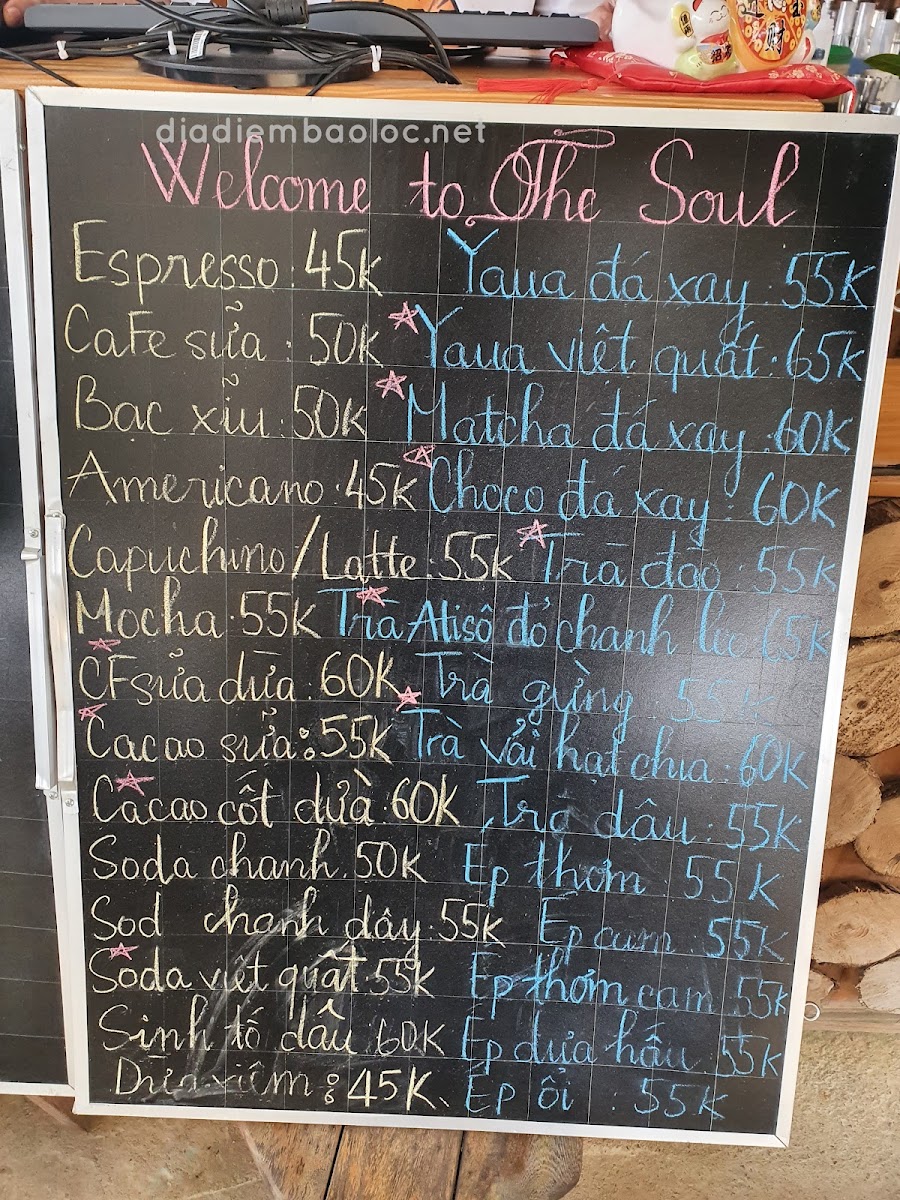 diadiembaoloc.net
Welcome to The Soul
Espresso. 45K
CaFe sữa : 50K
Bạc xỉu : 50K
Americano . 45K
Capuchino/Latte . 55K
Mocha . 55K
CF sữa dừa : 60K
Cacao sữa : 55K
Cacao cốt dừà . 60K
Soda chanh . 50K
Sod chanh dây . 55K
Soda việt quất 55K
Sinh tố dâu . 60K
Dừa xiêm : 45K
Yaua đá xay . 55K
Yaua việt quất . 65K
Matcha đá xay . 60K
Choco đá xay : 60K
Trà đào . 55K
Trà Atisô đỏ chanh 65K
Trà gừng 55K
Trà vải hạt chia : 60K
Trà dâu . 55K
Ép thơm 55K
Ép cam . 55K
Ép thơm cam 55K
Ép dưa hấu . 55K
Ép ổi : 55K